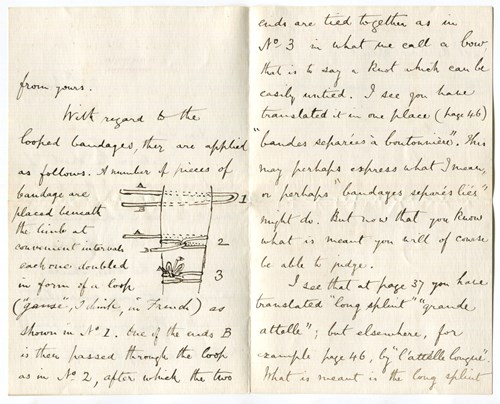 from yours.
With regard to the
looped bandages, they are applied
as follows. A number of pieces of
bandage are
placed beneath
the limb at
convenient intervals
each one doubled
in form of a loop
("ganse", I think, in French) as
shown in No 1. One of the ends B
is then passed through the loop
as in No 2, after which the two
A
B
1
A
B
2
A
B
3
ends are tied together as in
No 3 in what we call a bow
that is to say a knot which can be
easily untied. I see you have
translated it in one place (page 46)
"bandes separées à boutonnière". This
may perhaps express what I mean,
or perhaps "bandages separés liés"
might do. But now that you know
what is meant you will of course
be able to judge.
I see that at page 37 you have
translated "long splint" "grande
attelle"; but elsewhere, for
example page 46, by "l'attelle longue".
What is meant is the long splint